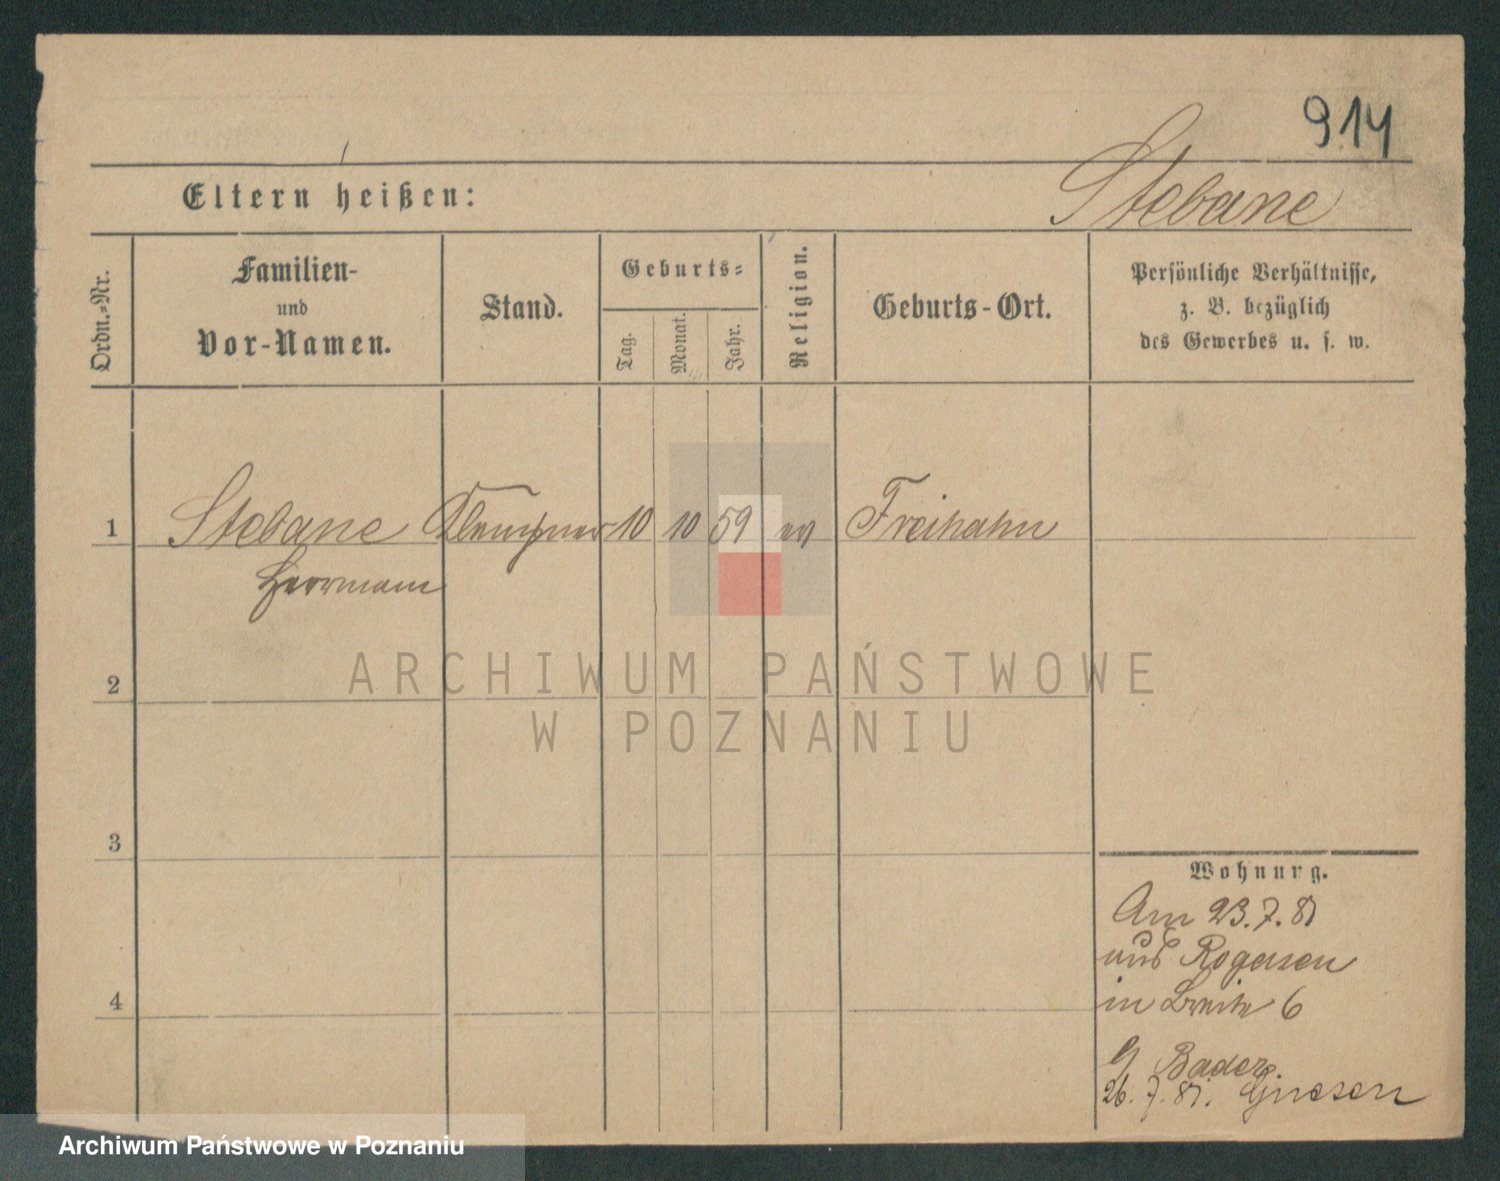 914
Eltern heißen: Stebane
Ordn.-Nr.
Familien-
und
Vor-Namen.
Stand.
Geburts-
Tag.
Monat.
Jahr.
Religion.
Geburts-Ort.
Persönliche Verhältnisse,
z. B. bezüglich
des Gewerbes u. s. w.
1 Stebane Klempner 10 10 59 ev Freihahn
Herrmann
2
3
4
Wohnung.
Am 23.7.81
aus Rogasen
in Breite 6
Bader
26.7.81. Gnesen
ARCHIWUM PAŃSTWOWE
W POZNANIU
Archiwum Państwowe w Poznaniu